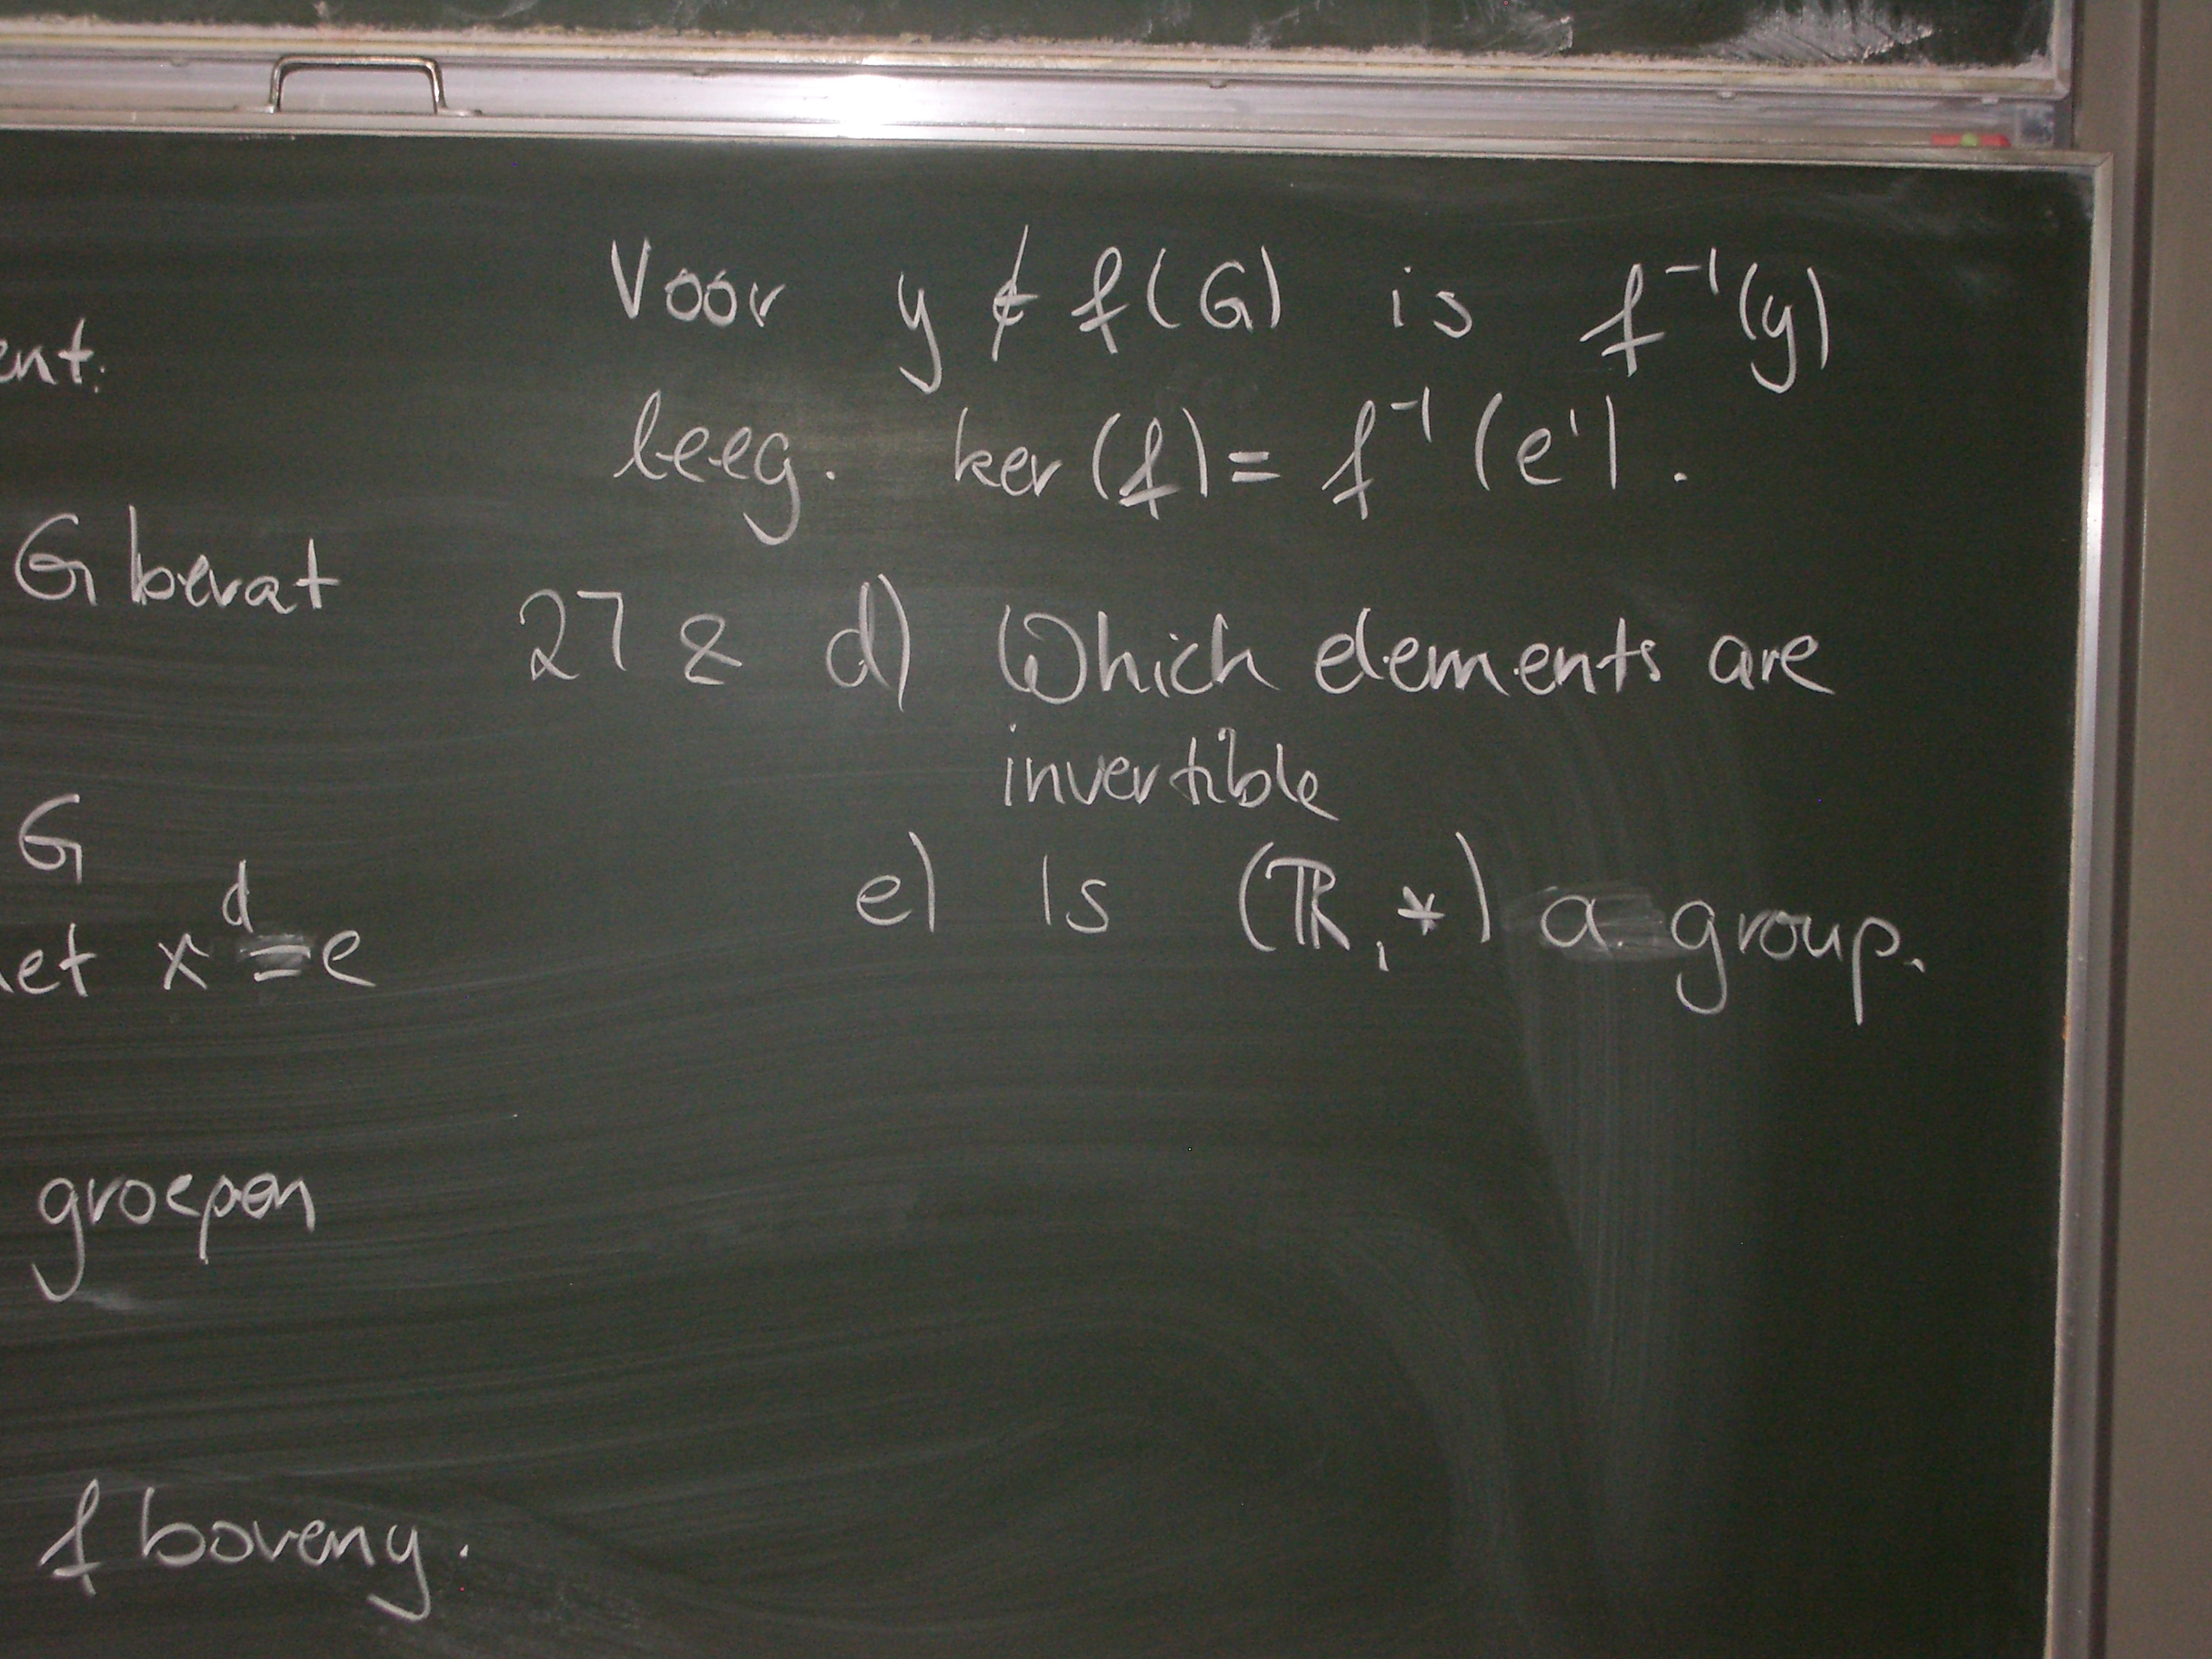 ent.
G bevat
G
et x^d = e
groepen
f boven y.
Voor y ∉ f(G) is f⁻¹(y)
leeg. ker(f) = f⁻¹(e').
27 & d) Which elements are
invertible
e) Is (ℝ, *) a group.